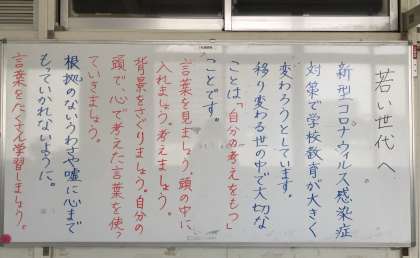 若い世代へ
新型コロナウィルス感染症
対策で学校教育が大きく
変わろうとしています。
移り変わる世の中で大切な
ことは「自分の考えをもつ」
ことです。
言葉を見ましょう。頭の中に
入れましょう。考えましょう。
背景をさぐりましょう。自分の
頭で、心で考えた言葉を使っ
ていきましょう。
根拠のないうわさや嘘に心まで
もっていかれないように。
言葉をたくさん学習しましょう。